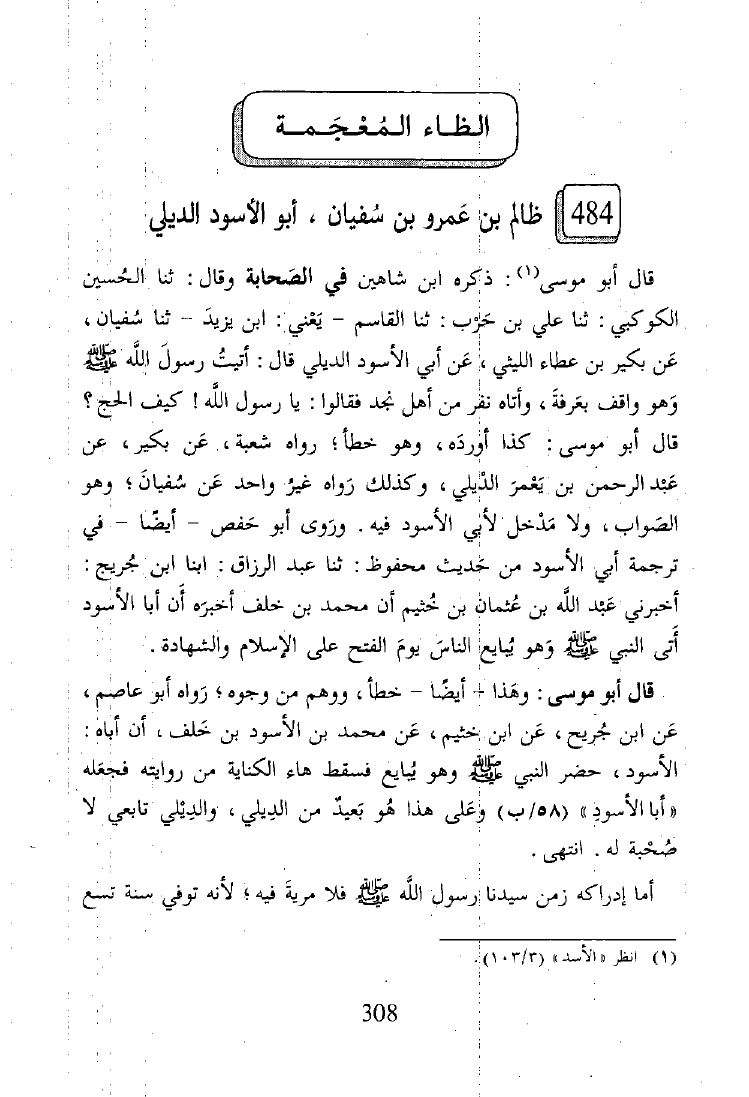 الظاء المُعْجَمة
484 ظالم بن عَمرو بن سُفيان ، أبو الأسود الديلي
قال أبو موسى(١) : ذكره ابن شاهين في الصَحابة وقال : ثنا الحُسين
الكوكبي : ثنا علي بن حَرْب : ثنا القاسم – يَعْني : ابن يزيدَ – ثنا سُفيان ،
عَن بكير بن عطاء الليثي ، عَن أبي الأسود الديلي قال : أتيتُ رسولَ اللَّه ﷺ
وَهو واقف بعَرفةَ ، وأتاه نفر من أهل نجد فقالوا : يا رسول اللَّه ! كيف الحج ؟
قال أبو موسى : كذا أوردَه ، وهو خطأ ؛ رواه شعبة ، عَن بكير ، عن
عَبْد الرحمن بن يَعْمرَ الدِّيلي ، وكذلك رَواه غيرُ واحد عَن سُفيانَ ؛ وهو
الصَواب ، ولا مَدْخل لأبي الأسود فيه . ورَوى أبو حَفص – أيضًا – في
ترجمة أبي الأسود من حَديث محفوظ : ثنا عبد الرزاق : ابنا ابن جُريج :
أخبرني عَبْد اللَّه بن عُثمان بن خُثيم أن محمد بن خلف أخبرَه أن أبا الأسود
أَتى النبي ﷺ وَهو يُبايع الناسَ يومَ الفتح على الإسلام والشهادة .
قال أبو موسى : وهَذا – أيضًا – خطأ ، ووهم من وجوه ؛ رَواه أبو عاصم ،
عَن ابن جُريج ، عَن ابن خثيم ، عَن محمد بن الأسود بن خَلف ، أن أباه :
الأسود ، حضر النبي ﷺ وهو يُبايع فسقط هاء الكناية من روايته فجعَله
«أبا الأسود» (٥٨/ب) وعَلى هذا هُو بَعيدٌ من الدِيلي ، والدِيْلي تابعي لا
صُحْبة له . انتهى .
أما إدراكه زمن سيدنا رسول اللَّه ﷺ فلا مريةَ فيه ؛ لأنه توفي سنة تسع
(١) انظر «الأسد» (١٠٣/٣).
308